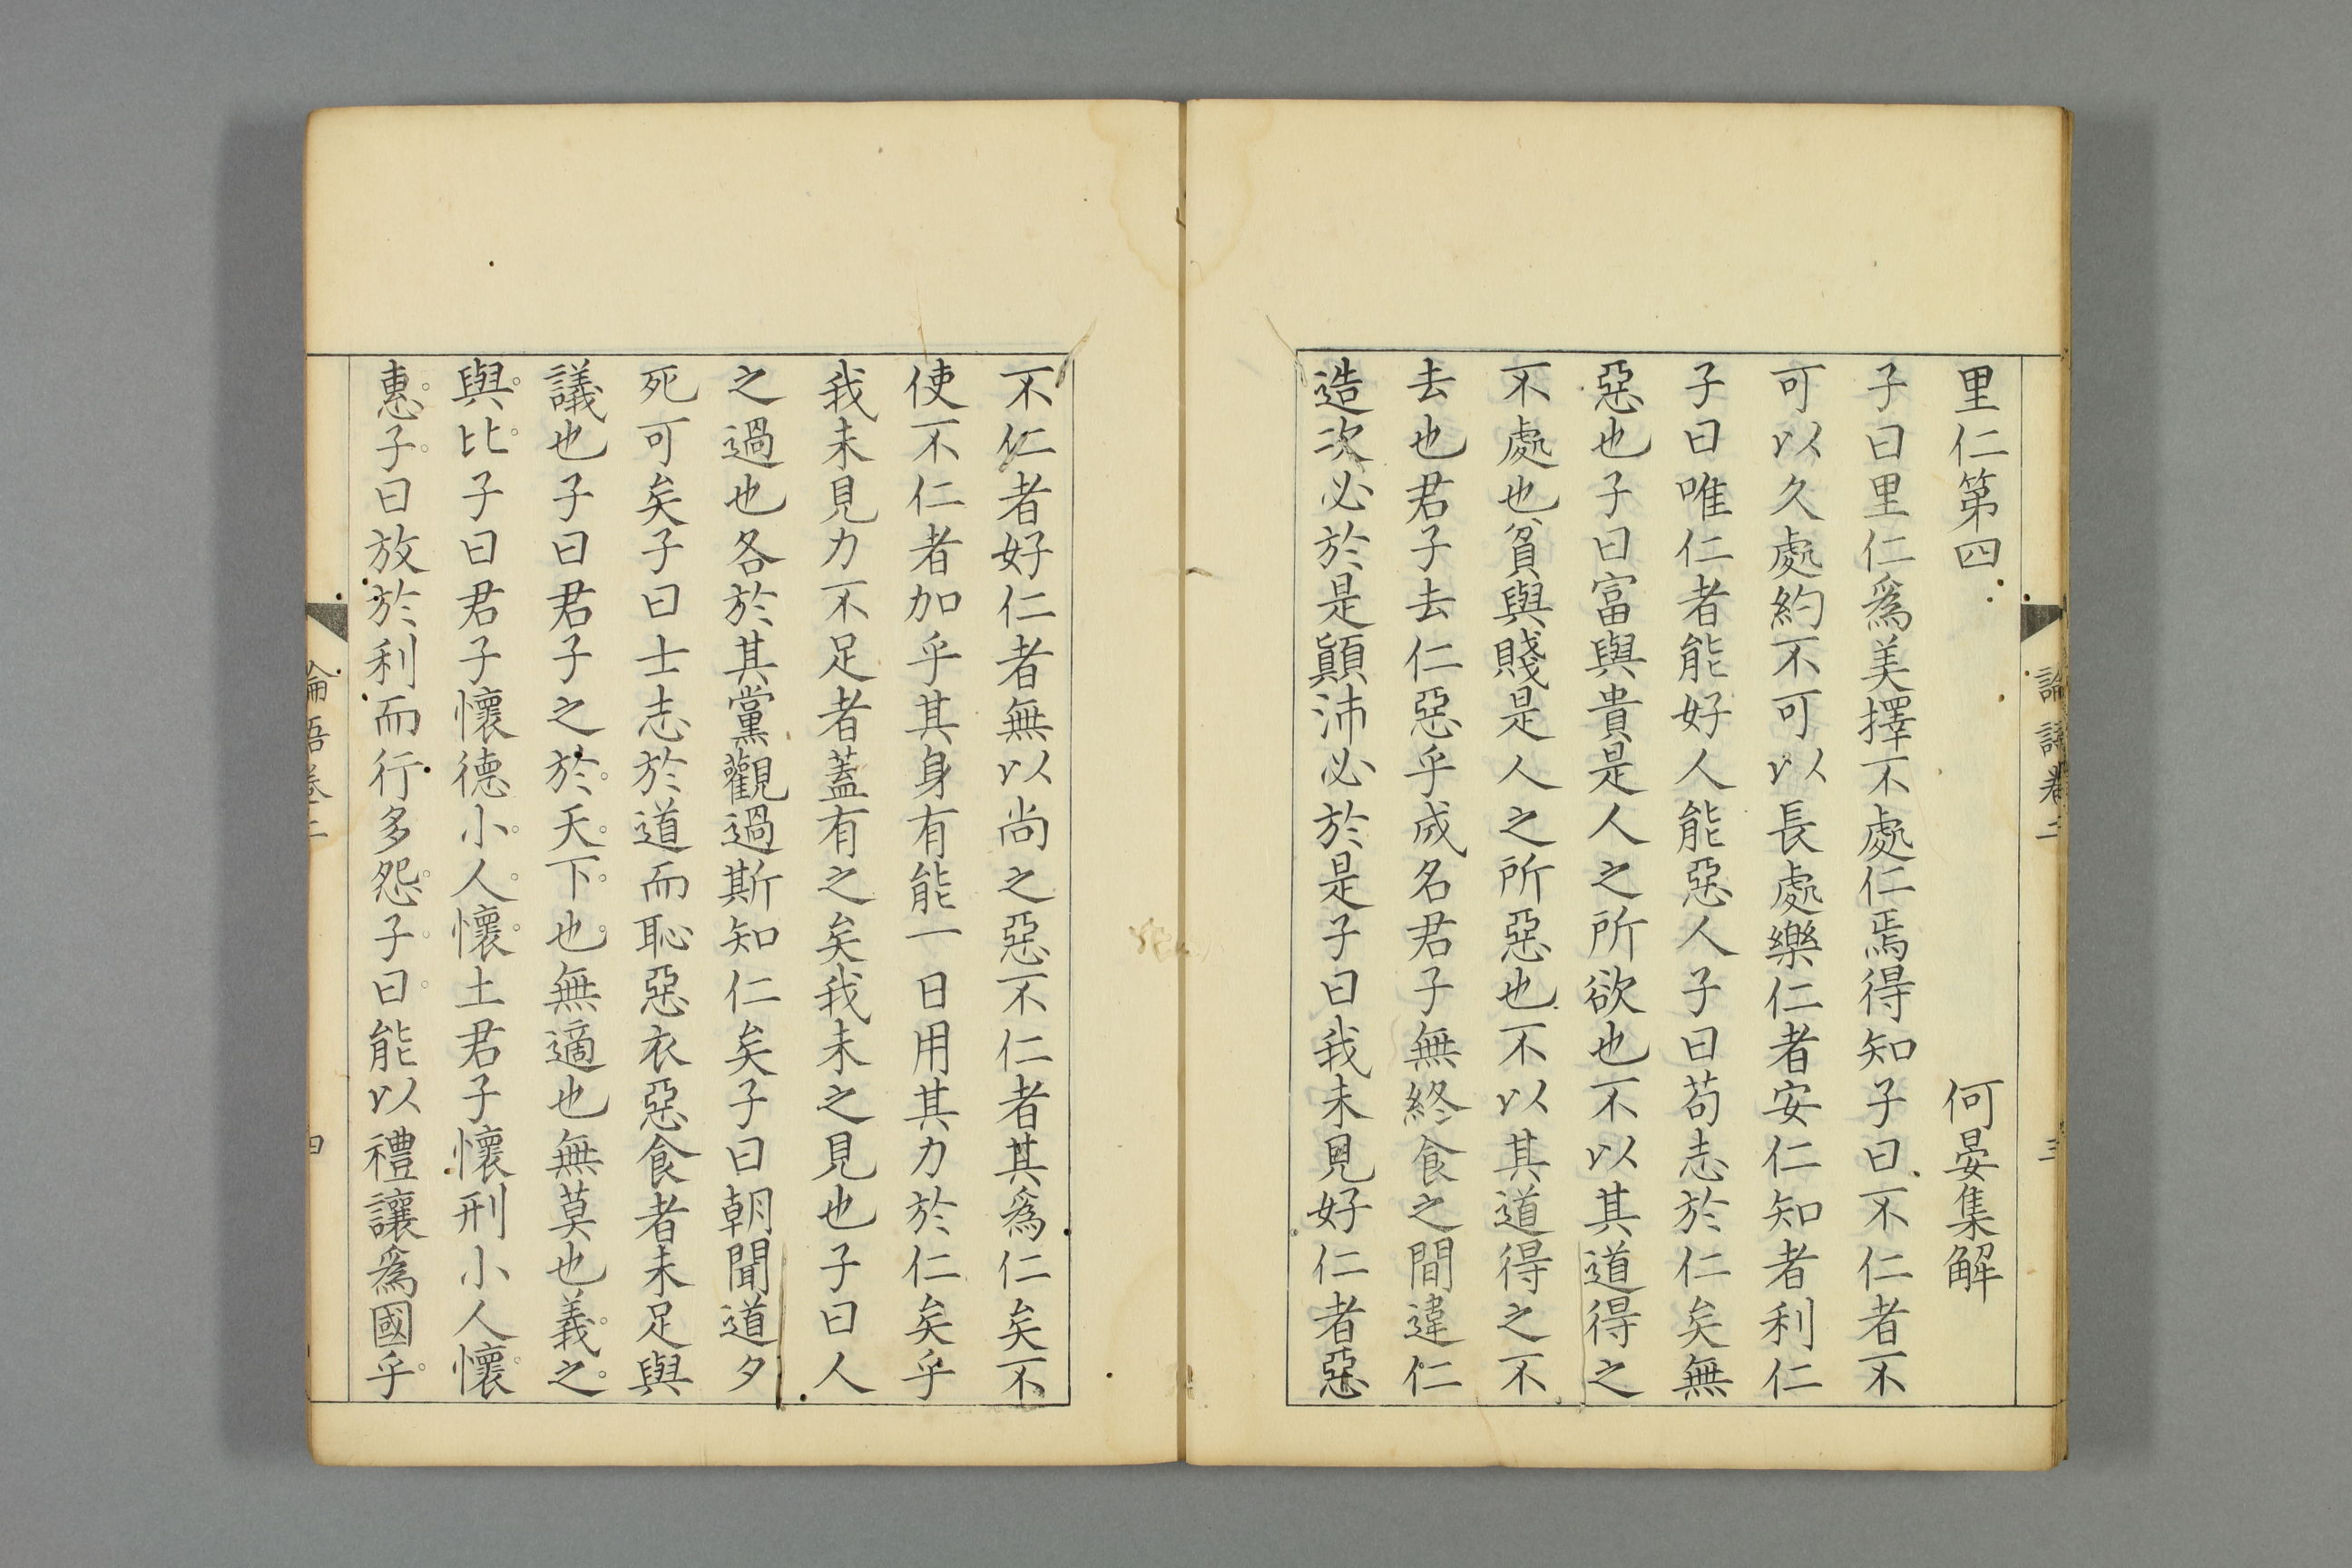 論語卷二
三
里仁第四 何晏集解
子曰里仁爲美擇不處仁焉得知子曰不仁者不
可以久處約不可以長處樂仁者安仁知者利仁
子曰唯仁者能好人能惡人子曰苟志於仁矣無
惡也子曰富與貴是人之所欲也不以其道得之
不處也貧與賤是人之所惡也不以其道得之不
去也君子去仁惡乎成名君子無終食之間違仁
造次必於是顚沛必於是子曰我未見好仁者惡
不仁者好仁者無以尚之惡不仁者其爲仁矣不
使不仁者加乎其身有能一日用其力於仁矣乎
我未見力不足者蓋有之矣我未之見也子曰人
之過也各於其黨觀過斯知仁矣子曰朝聞道夕
死可矣子曰士志於道而恥惡衣惡食者未足與
議也子曰君子之於天下也無適也無莫也義之
與比子曰君子懷德小人懷土君子懷刑小人懷
惠子曰放於利而行多怨子曰能以禮讓爲國乎
論語卷二
四